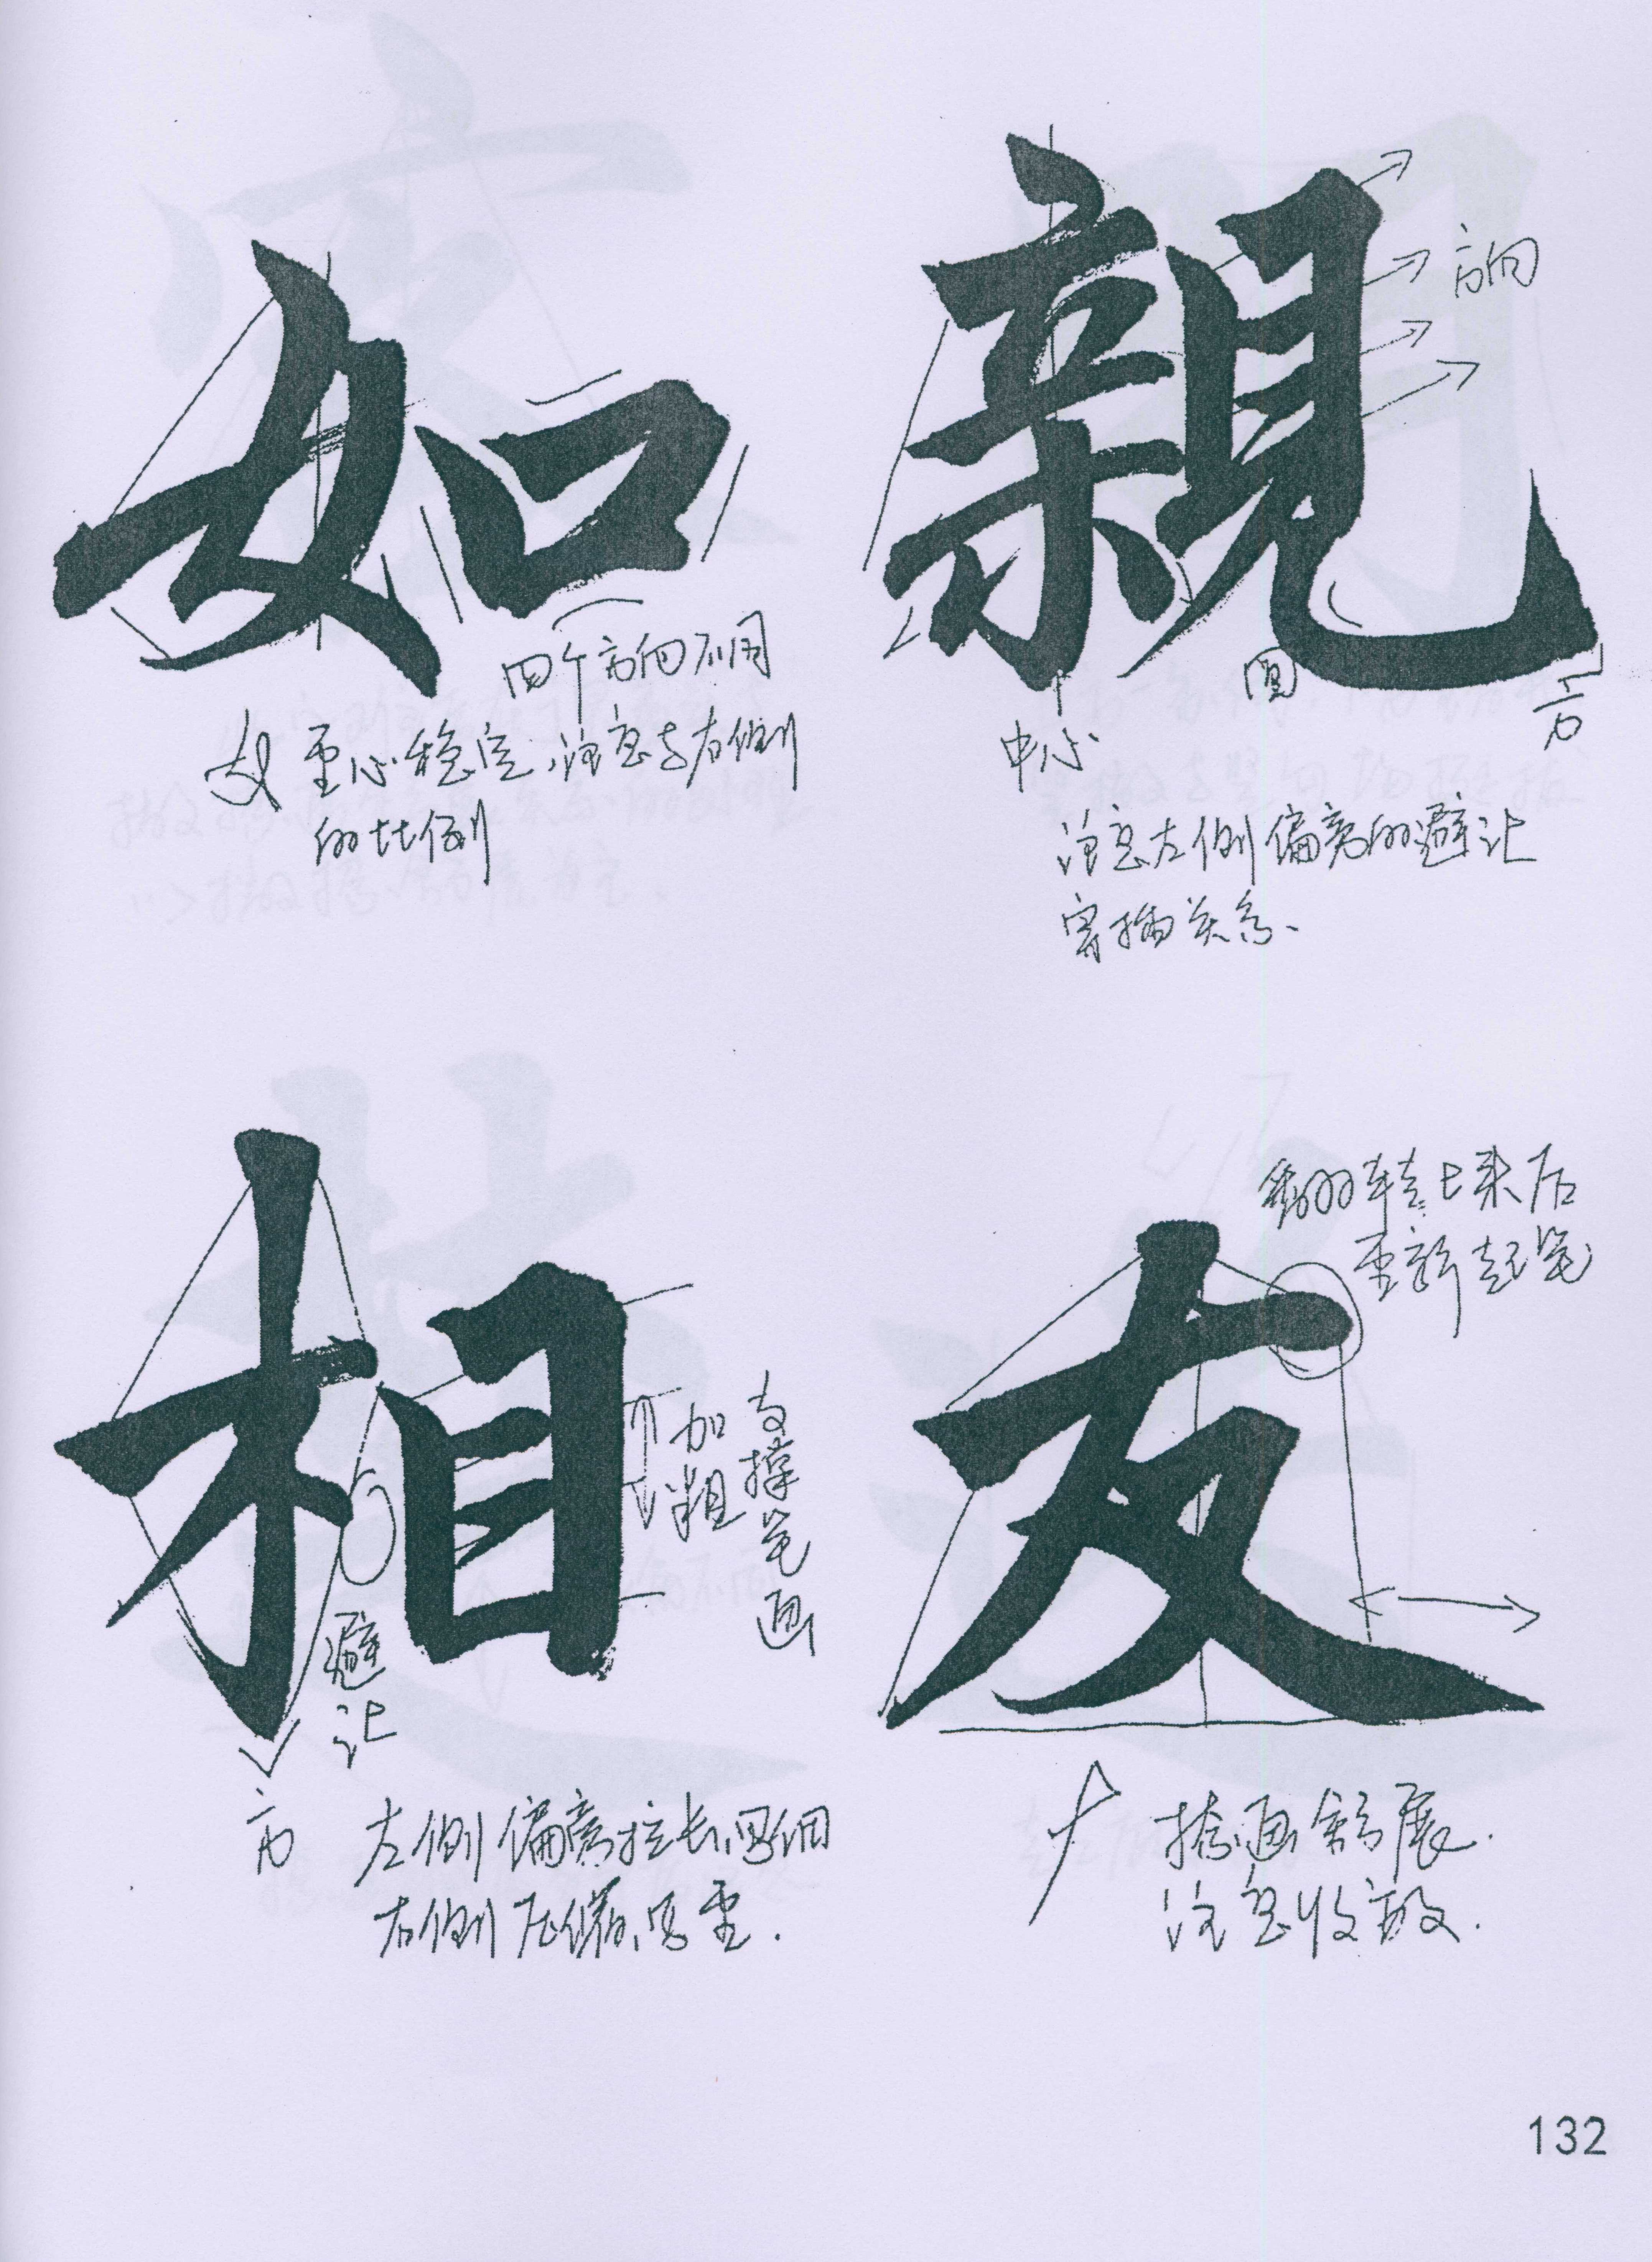 如
四个方向不同
女重心稳定,注意与右侧
的比例
親
方向
中心
圆
方
注意左侧偏旁的避让
穿插关系、
相
加粗
支撑笔画
避让
方
左侧偏旁拉长、写细
右侧压缩、写重.
友
翻转上来后
重新起笔
捺画舒展.
注意收放.
132